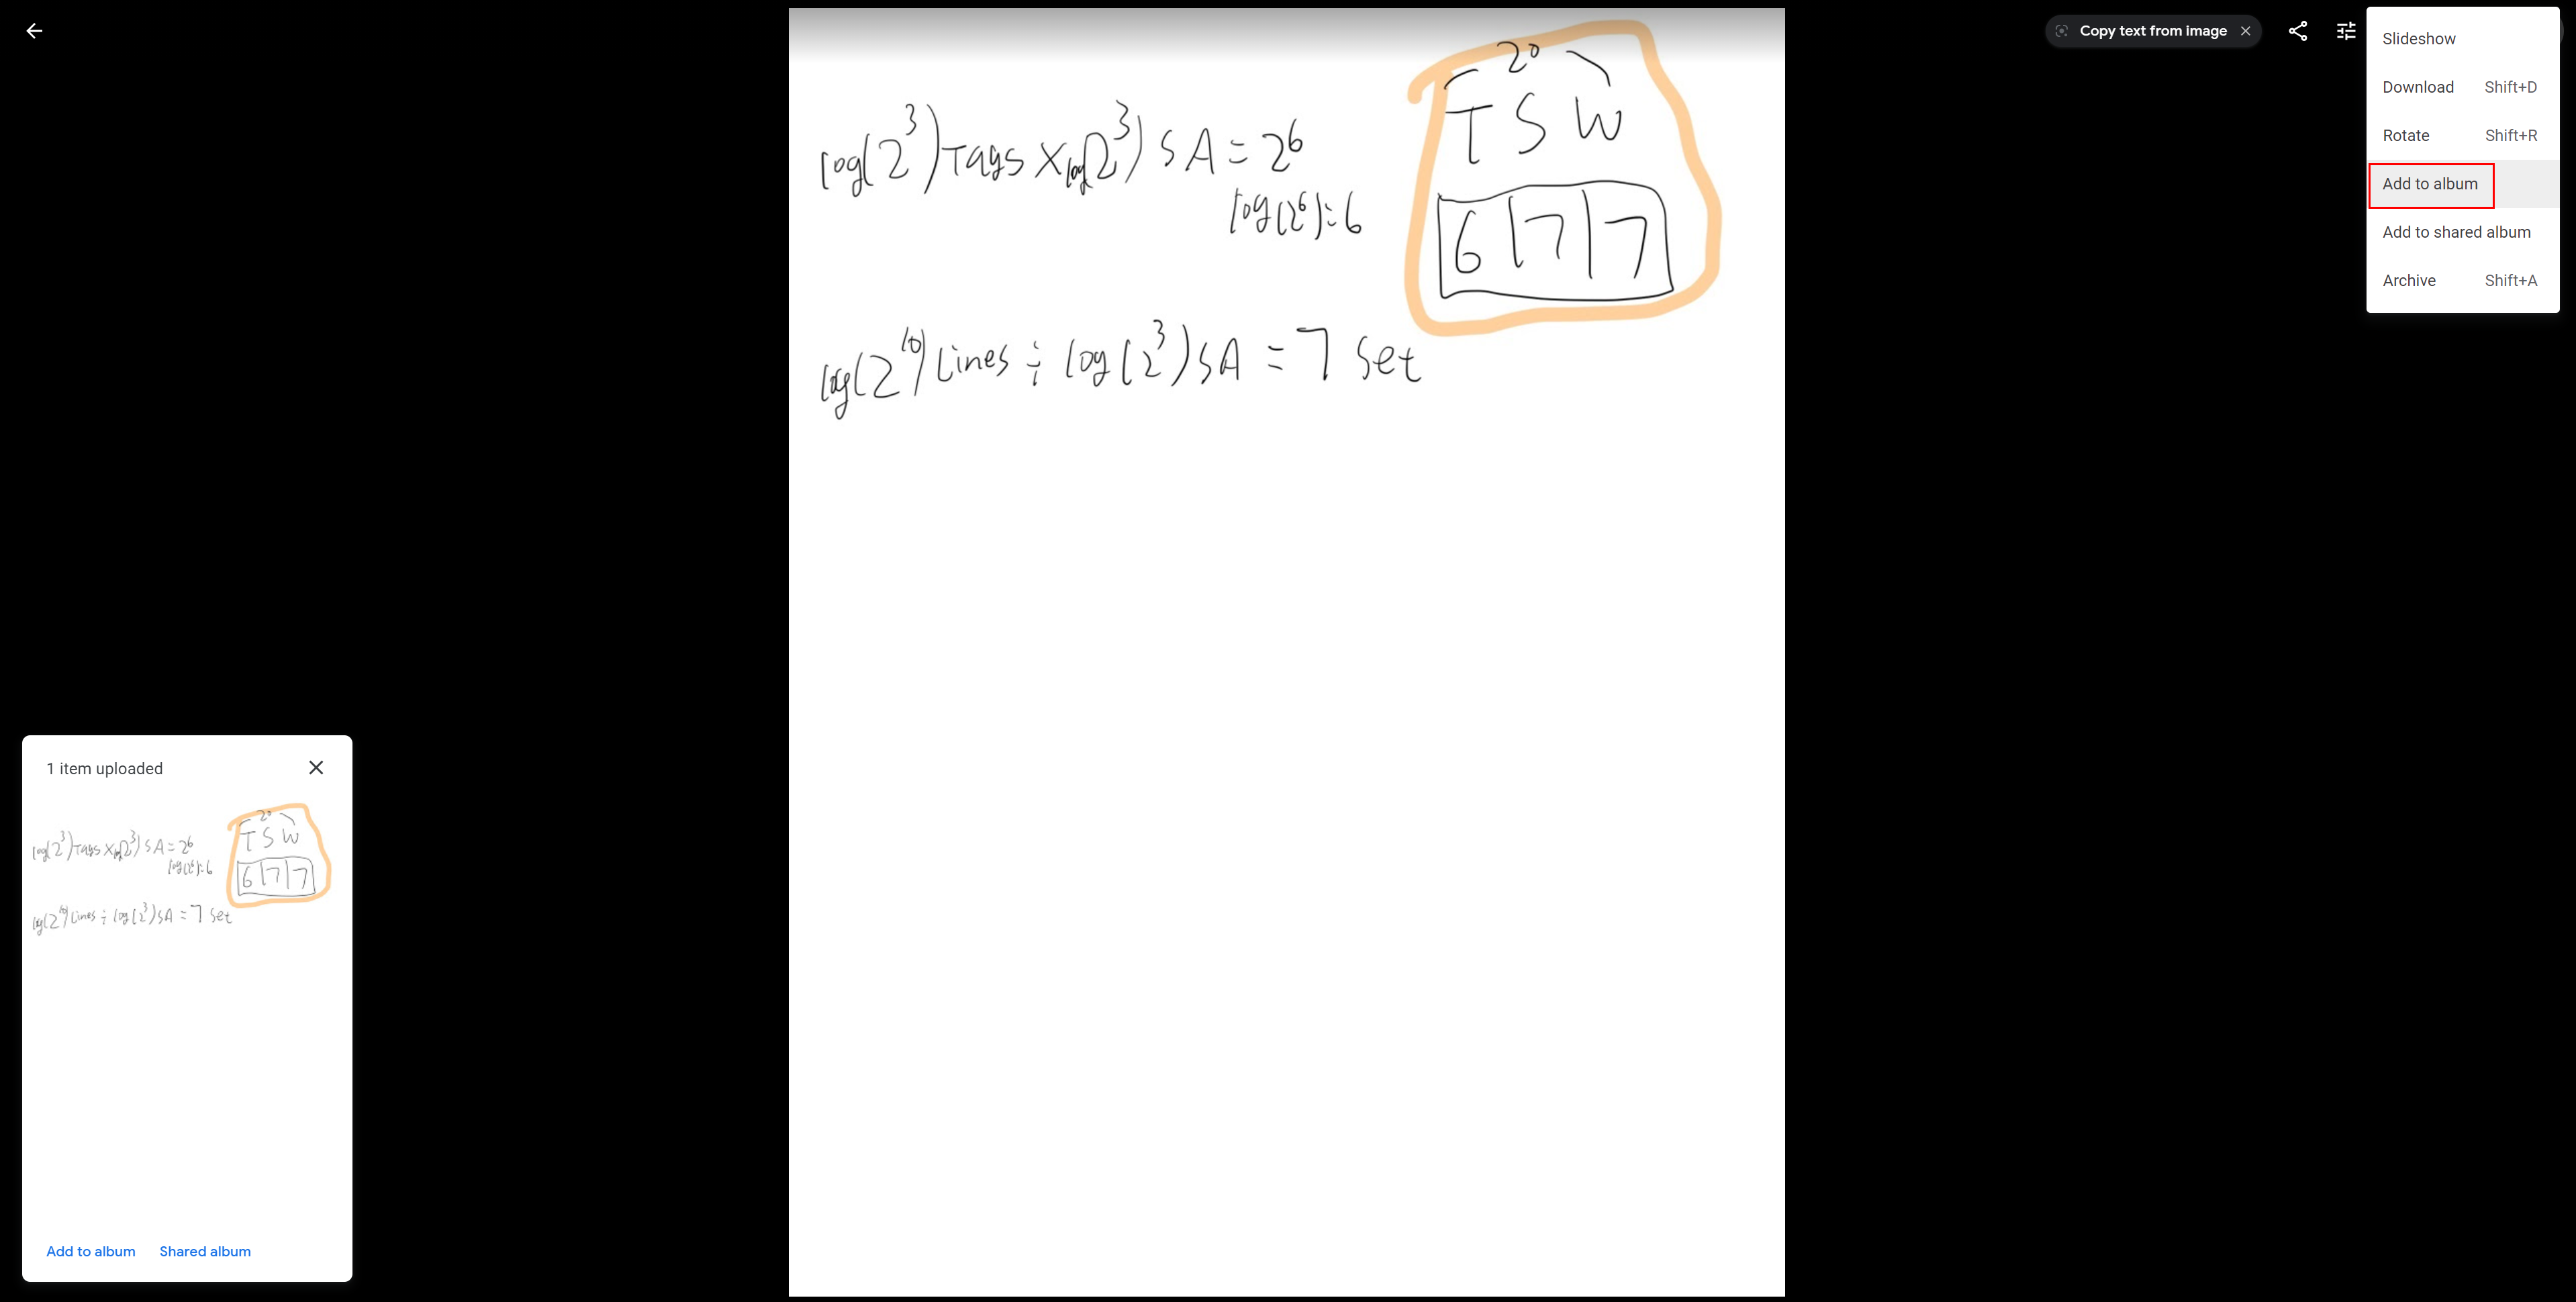 Copy text from image
Slideshow
Download Shift+D
Rotate Shift+R
Add to album
Add to shared album
Archive Shift+A
20
T S W
log(2³)Tags x log(2³) SA = 2⁶
log(2⁶)=6
6 | 7 | 7
log(2¹⁰)Lines ÷ log(2³)SA = 7 Set
1 item uploaded
20
T S W
log(2³)Tags x log(2³) SA = 2⁶
log(2⁶)=6
6 | 7 | 7
log(2¹⁰)Lines ÷ log(2³)SA = 7 Set
Add to album Shared album